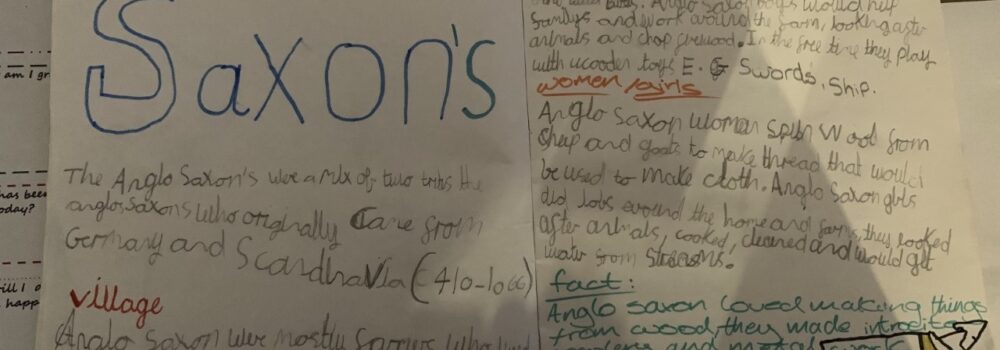 Saxon's
The Anglo Saxon's were a mix of two tribs the
anglo, Saxons who originally Came from
Germany and Scandhavia (410-1066)
village
Anglo Saxon were mostly farmers who lived
Anglo Saxon boys would help
familys and work around the farm, looking after
animals and chop firewood. In the free time they play
with wooden toys E.G Swords, Ship.
women/girls
Anglo Saxon women spun Wool from
Sheep and goats to make thread that would
be used to make cloth. Anglo Saxon girls
did Jobs around the home and farm, they looked
after animals, cooked, cleaned and would get
water from Streams.
fact:
Anglo saxon loved making things
from wood they made
and metal work
am I gr
has been
oday?
ill I
happ